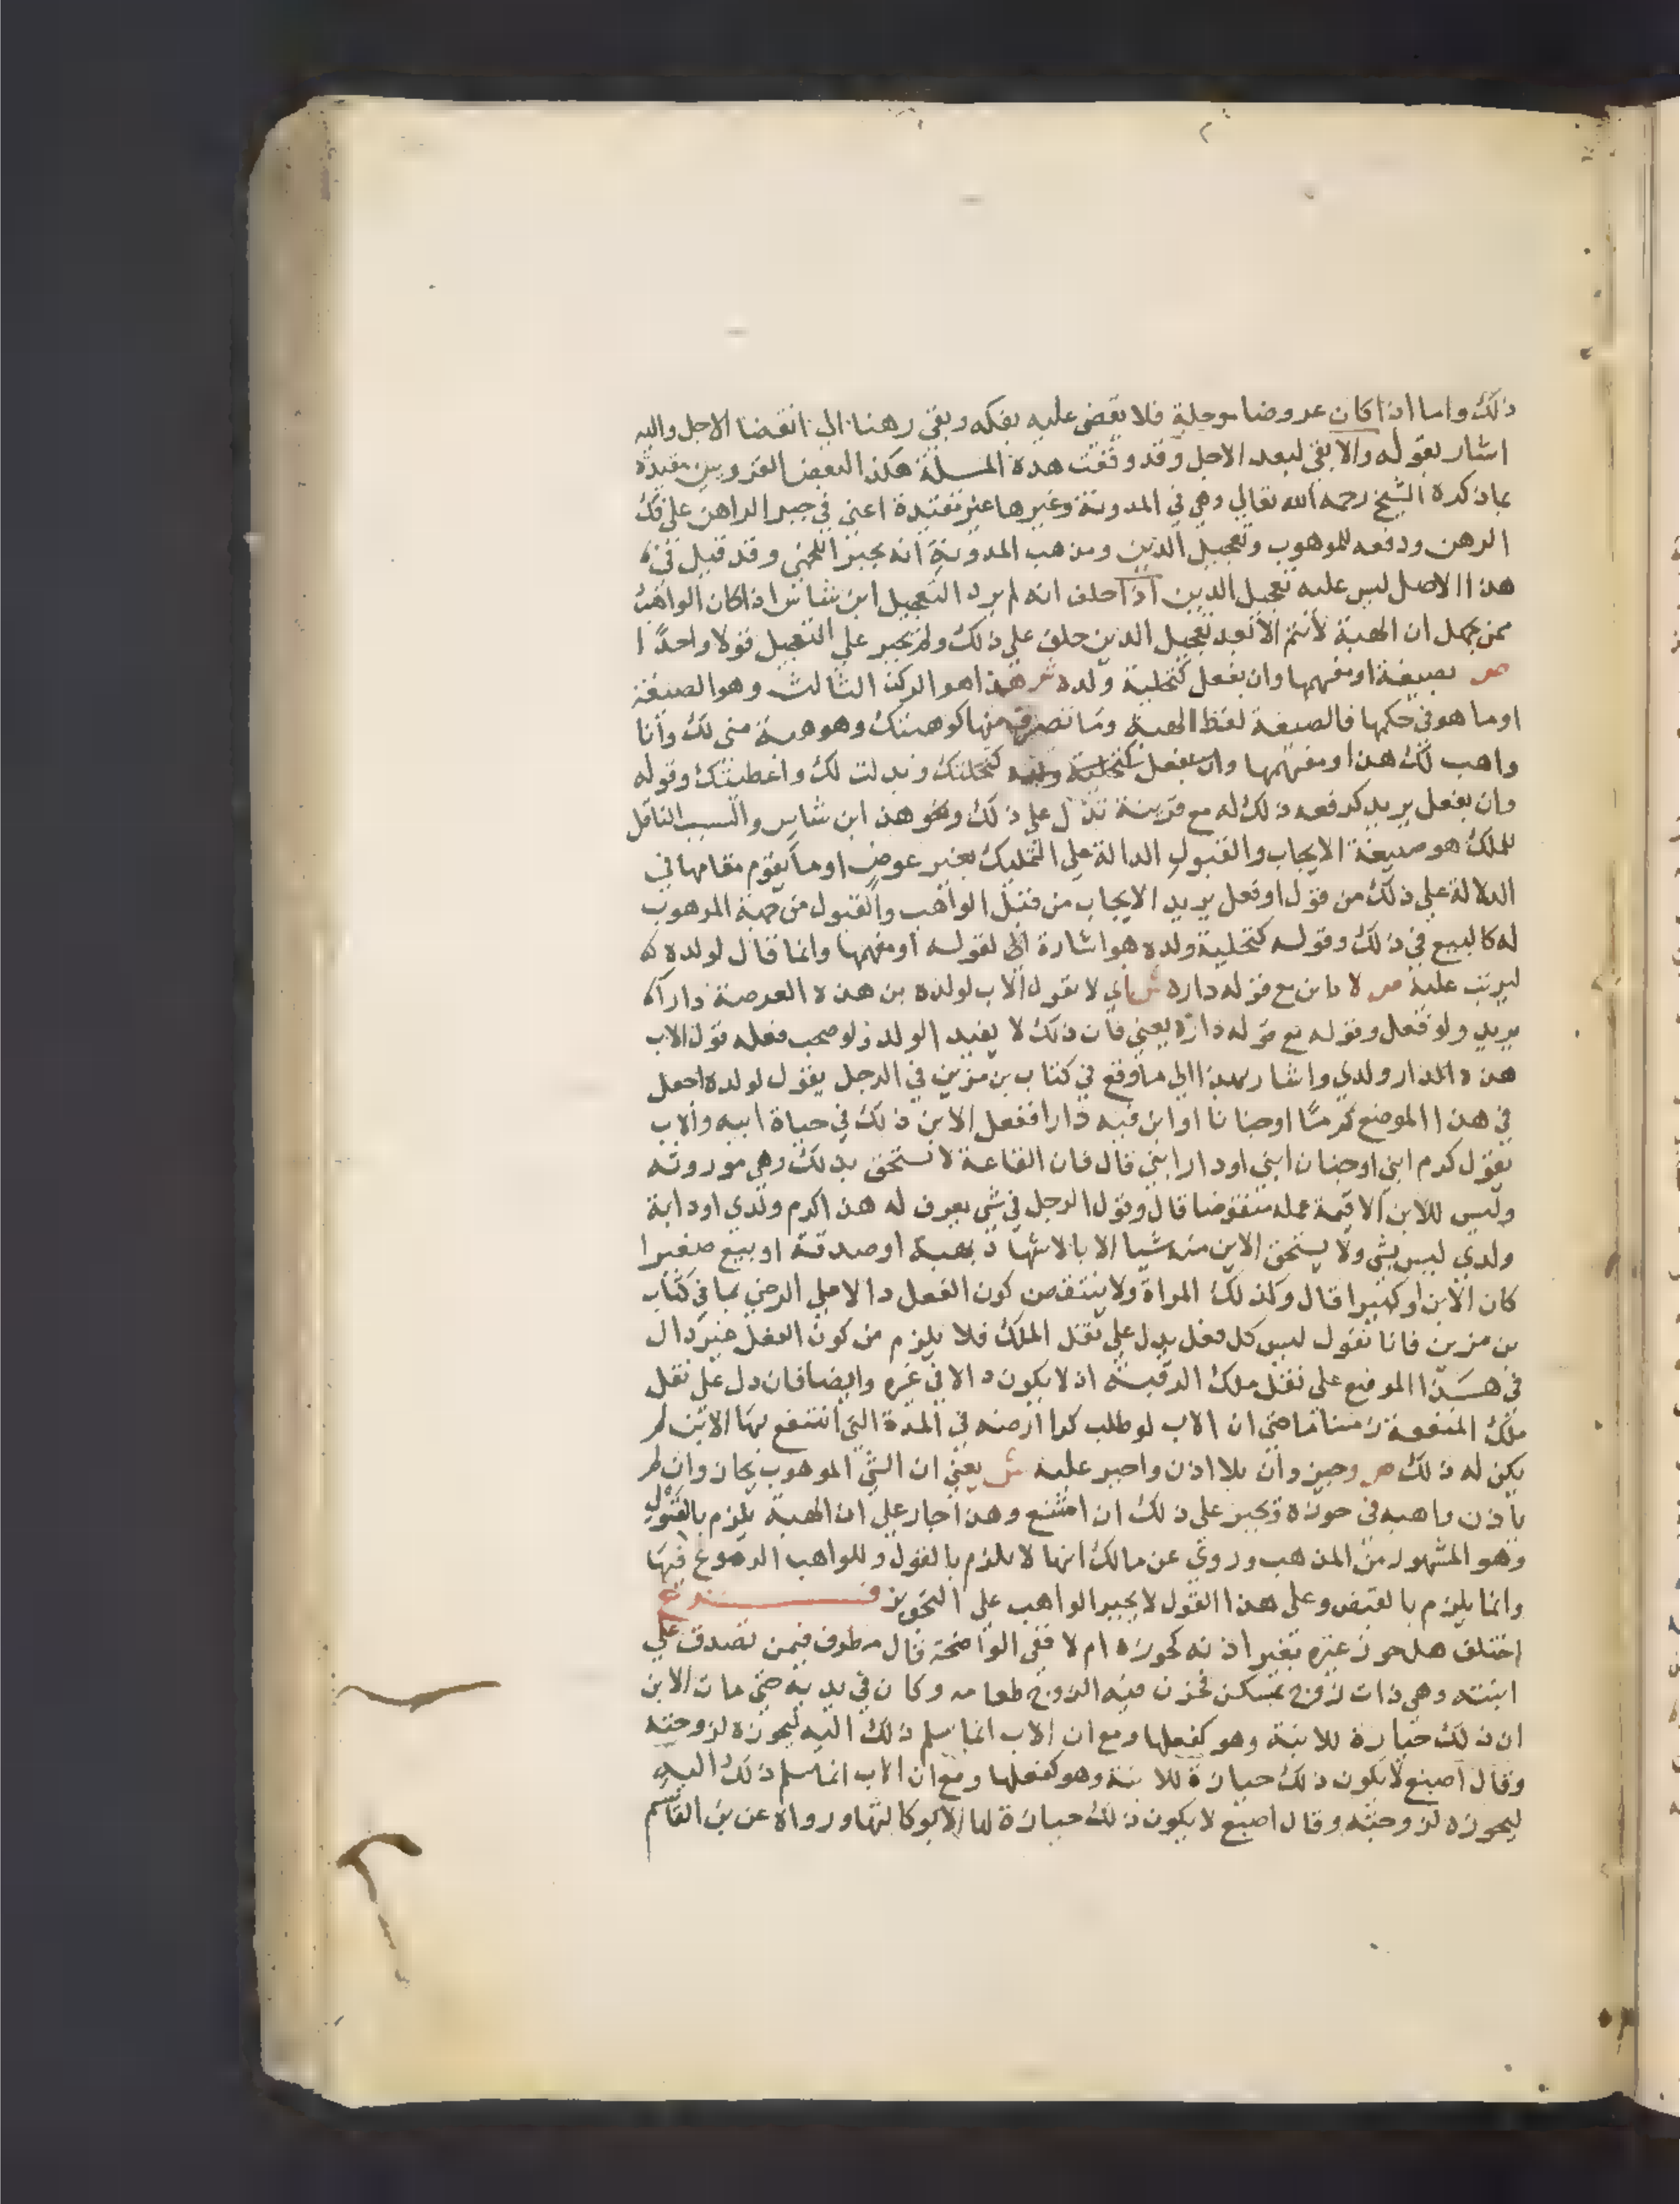 ذلك واما اذا كان عروضا موجلة فلا يقضى عليه بفكه وبقي رهنا الى انقضا الاجل واليه
اشار بقوله والا بقي لبعد الاجل وقد وقعت هذه المسلة هكذا لبعض القرويين مقيدة
بما ذكره الشيخ رحمه الله تعالى وهي في المدونة وغيرها غير مقيدة اعني في جبر الراهن على فك
الرهن ودفعه للموهوب وتعجيل الدين ومذهب المدونة انه يجبر اللخمي وقد قيل في
هذا الاصل ليس عليه تعجيل الدين اذا حلف انه لم يرد التعجيل ابن شاس اذا كان الواهب
ممن يجهل ان الهبة لا تتم الا بعد تعجيل الدين حلف على ذلك ولم يجبر على التعجيل قولا واحدا
ص بصيغة او مفهمها وان بفعل كتحلية ولده ش هذا هو الركن الثالث وهو الصيغة
او ما هو في حكمها فالصيغة لفظ الهبة وما تصرف منها كوهبتك وهو هبة مني لك وأنا
واهب لك هذا او مفهمها وان بفعل كتحلية ولده كنحلتك وبذلت لك واعطيتك وقوله
وان بفعل يريد كدفعه ذلك له مع قرينة تدل على ذلك ونحو هذا ابن شاس والسبب الناقل
للملك هو صيغة الايجاب والقبول الدالة على التمليك بغير عوض او ما يقوم مقامها في
الدلالة على ذلك من قول او فعل يريد الايجاب من قبل الواهب والقبول من جهة الموهوب
له كالبيع في ذلك وقوله كتحلية ولده هو اشارة الى لقوله او مفهمها وانما قال لولده له
ليرتب عليه ص لا بابن مع قوله داره ش اي لا بقول الاب لولده بن هذه العرصة دارا
يريد ولو فعل وقوله مع قوله داره يعني فان ذلك لا يفيد الولد ولو صحب فعله قول الاب
هذه الدار ولدي واشار بهذا الى ما وقع في كتاب بن مزين في الرجل يقول لولده اجعل
في هذا الموضع كرما او جنانا او ابن فيه دارا ففعل الابن ذلك في حياة ابيه والاب
يقول كرم ابني او جنان ابني او دار ابني قال فان القاعة لا تستحق بذلك وهي موروثه
وليس للابن الا قيمة عمله منقوضا قال وقول الرجل في شي يعرف له هذا كرم ولدي او دابة
ولدي ليس بشي ولا يستحق الابن منه شيا الا بالاشهاد بهبة او صدقة او بيع صغيرا
كان الابن او كبيرا قال وكذلك المراة ولا ينتقض كون الفعل دالا على الرضي بما في كتاب
بن مزين فانا نقول ليس كل فعل يدل على نقل الملك فلا يلزم من كون الفعل غير دال
في هذا الموضع على نقل ملك الرقبة ان لا يكون دالا في غيره وايضا فان دل على نقل
ملك المنفعة زمنا ما حتى ان الاب لو طلب كرا ارضه في المدة التي انتفع بها الابن لم
يكن له ذلك ص وحيز وان بلا اذن واجبر عليه ش يعني ان الشي الموهوب يحاز وان لم
ياذن واهبه في حوزه ويجبر على ذلك ان امتنع وهذا جار على ان الهبة يلزم بالقول
وهو المشهور من المذهب وروي عن مالك انها لا يلزم بالقول وللواهب الرجوع فيها
وانما يلزم بالقبض وعلى هذا القول لا يجبر الواهب على التحويز فــــــروع
اختلف هل حوز غيره بغير اذنه كحوزه ام لا ففي الواضحة قال مطرف فيمن تصدق على
ابنته وهي ذات زوج بمسكن فخزن فيه الزوج طعامه وكان في يديه حتى مات الابن
ان ذلك حيازة للابنة وهو كفعلها ومع ان الاب انما سلم ذلك اليه ليحوزه لزوجته
وقال اصبغ لا يكون ذلك حيازة للابنة وهو كفعلها ومع ان الاب انما سلم ذلك اليه
ليحوزه لزوجته وقال اصبغ لا يكون ذلك حيازة لها الا بوكالتها ورواه عن بن القاسم